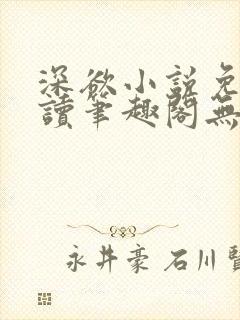 深欲小说免
讀筆趣閣無
永井豪 石川賢